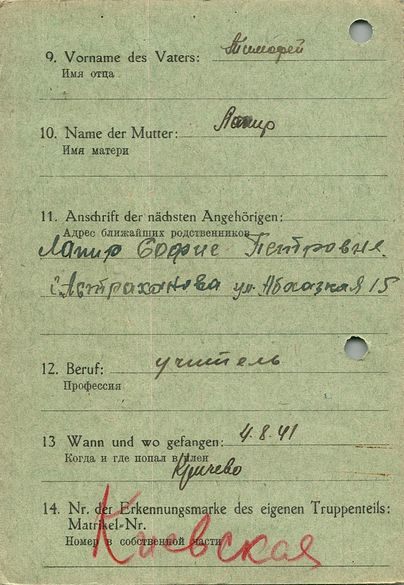 9. Vorname des Vaters: Тимофей
Имя отца
10. Name der Mutter: Лапир
Имя матери
11. Anschrift der nächsten Angehörigen:
Адрес ближайших родственников
Лапир Софие Петровне
г. Астраханова ул. Абхазкая 15
12. Beruf: учитель
Профессия
13 Wann und wo gefangen: 4.8.41
Когда и где попал в плен
Кричево
14. Nr. der Erkennungsmarke des eigenen Truppenteils:
Matrikel-Nr.
Номер в собственной части
Киевская